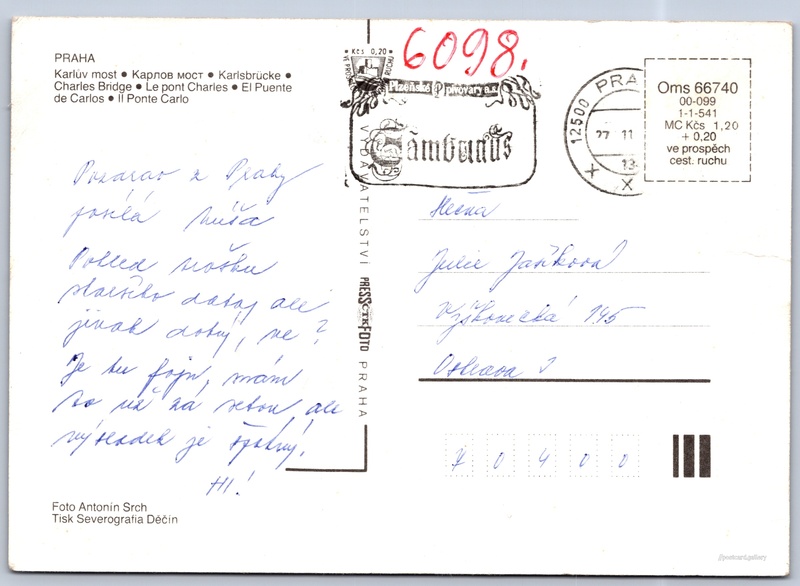 PRAHA
Karlův most ● Карлов мост ● Karlsbrücke ●
Charles Bridge ● Le pont Charles ● El Puente
de Carlos ● Il Ponte Carlo
Pozdrav z Prahy
posílá
Pohled trošku
staršího data, ale
jinak dobrý, ne?
Je tu fajn, mám
to už za sebou, ale
výsledek je špatný.
Foto Antonín Srch
Tisk Severografia Děčín
Kčs 0,20
6098.
Plzeňské Pivovary a.s.
Gambrinus
VYDAVATELSTVÍ PRESSFOTO PRAHA
12500 PRA
27 11
Oms 66740
00-099
1-1-541
MC Kčs 1,20
+ 0,20
ve prospěch
cest. ruchu
Slečna
Julie Jašíková
195
Ostrava
7 0 4 0 0
@postcard.gallery